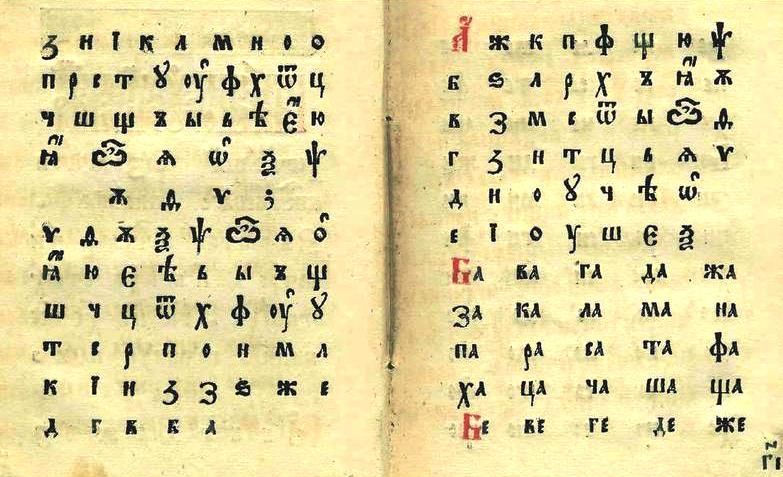 ꙁ и ї к л м н о о
п р с т ꙋ оу ф х ѿ ц
ч ш щ ъ ы ь ѣ є ю
ꙗ ѽ ѧ ѡ ѯ ѱ
ѫ ѳ ѵ ;
ѵ ѳ ѫ ѯ ѱ ѽ ѧ о
ꙗ ю є ѣ ь ы ъ щ
ш ч ц ѿ х ф оу ꙋ
т с р п о н м л
к ї и ꙁ з ѕ ж е
д г в б а
А ж к п ф щ ю ѱ
б ѕ л р х ъ ꙗ ѫ
в з м с ѿ ы ѽ ѳ
г ꙁ н т ц ь ѧ ѵ
д и о ꙋ ч ѣ ѡ
е ї о у ш є ѯ
Ба ва га да жа
за ка ла ма на
па ра са та фа
ха ца ча ша ща
Бе ве ге де же
г҃і